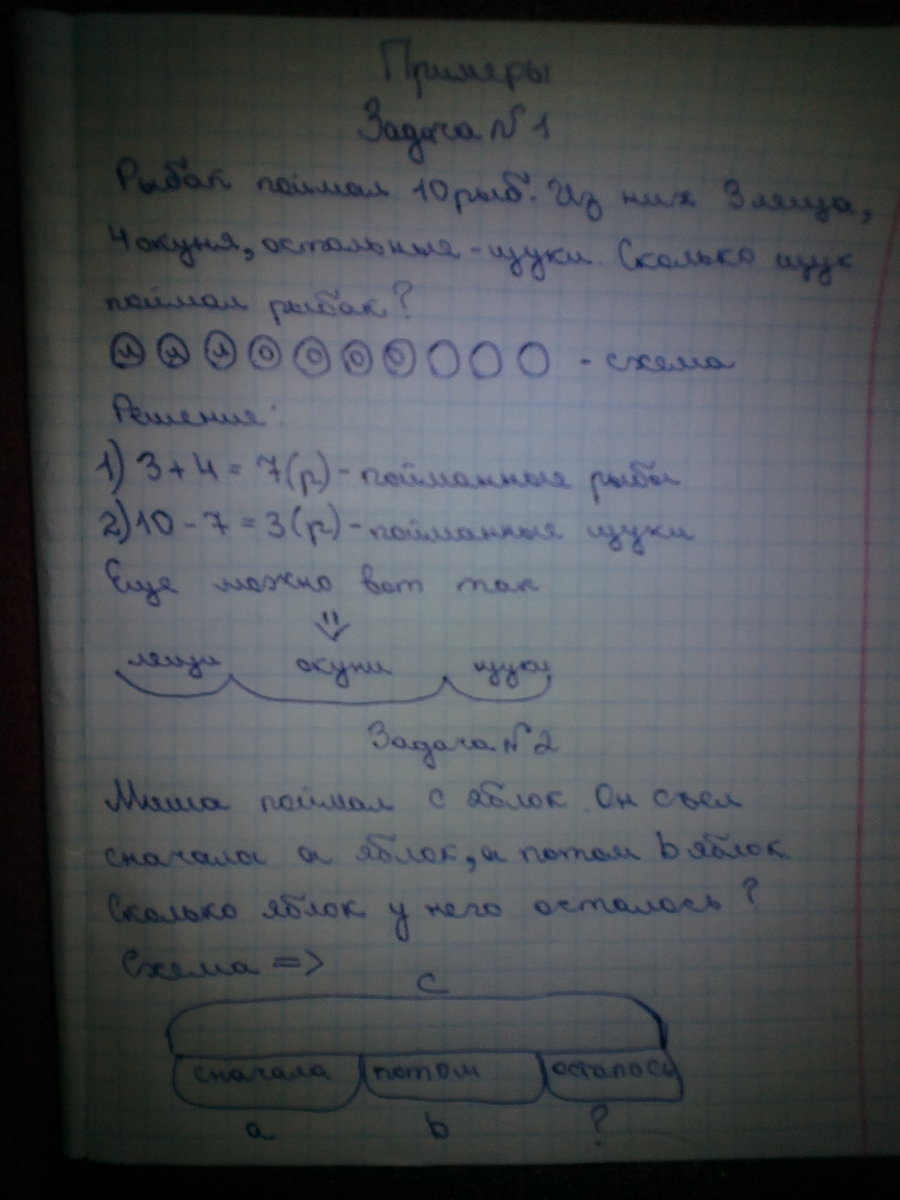 Примеры
Задача № 1
Рыбак поймал 10 рыб. Из них 3 леща,
4 окуня, остальные - щуки. Сколько щук
поймал рыбак?
л л л о о о о - схема
Решение:
1) 3 + 4 = 7 (р) - пойманные рыбы
2) 10 - 7 = 3 (р) - пойманные щуки
Еще можно вот так
лещи окуни щуки
Задача № 2
Миша поймал с яблок. Он съел
сначала а яблок, а потом b яблок
Сколько яблок у него осталось?
Схема =>
с
сначала потом осталось
а b ?